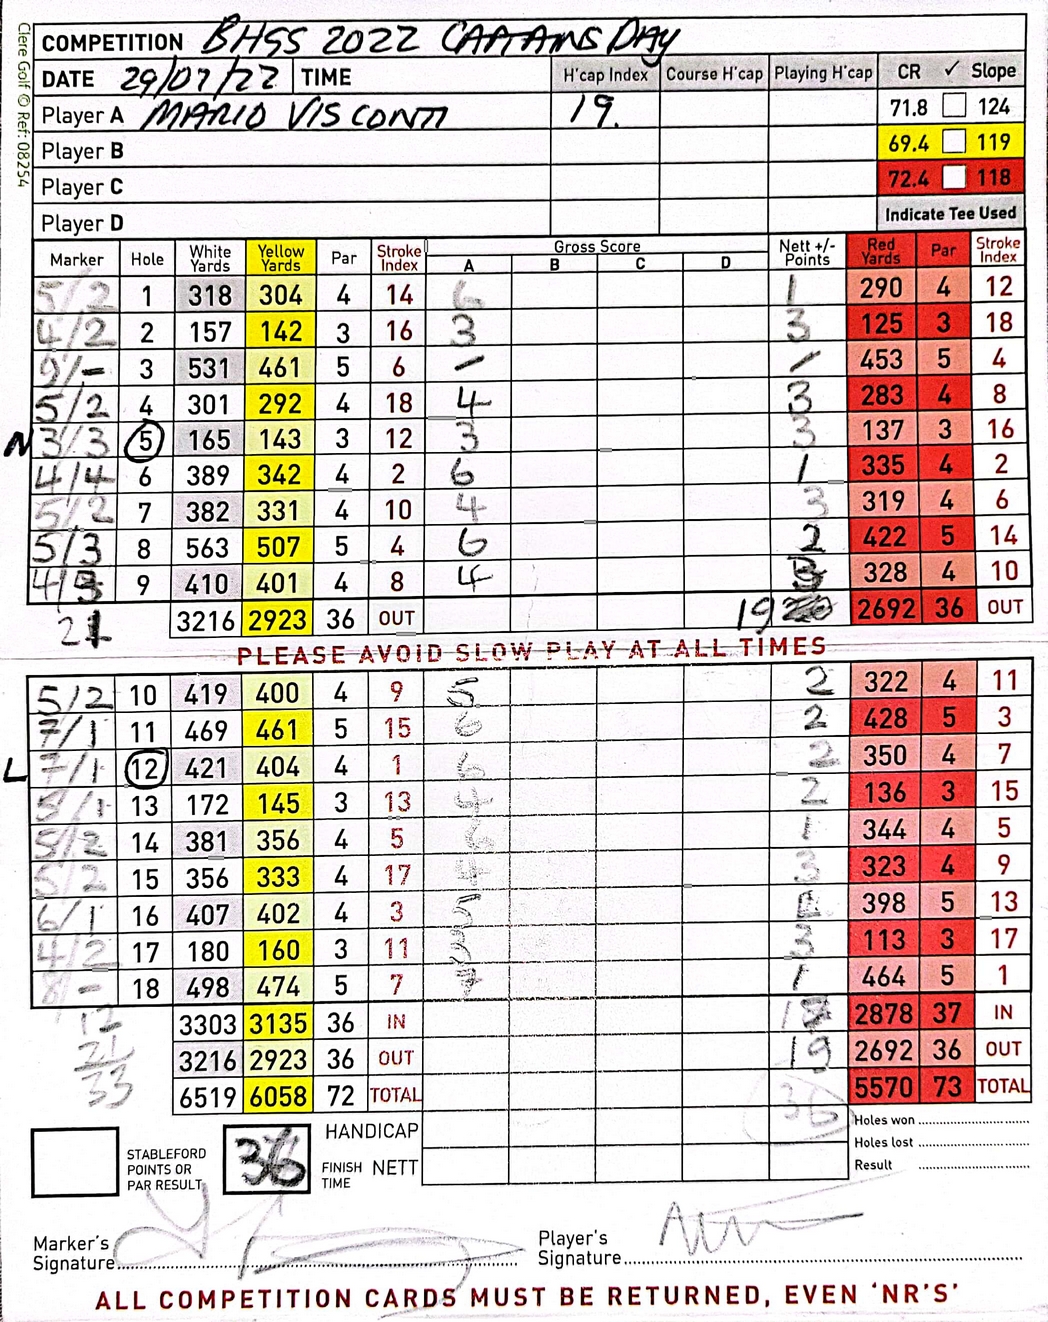 Clere Golf © Ref: 08254
COMPETITION BHSS 2022 CAPTAINS DAY
DATE 29/07/22 TIME H'cap Index Course H'cap Playing H'cap CR ✓ Slope
Player A MARIO VISCONTI 19. 71.8 124
Player B 69.4 119
Player C 72.4 118
Player D Indicate Tee Used
Marker Hole White Yards Yellow Yards Par Stroke Index Gross Score A B C D Nett +/- Points Red Yards Par Stroke Index
5/2 1 318 304 4 14 6 1 290 4 12
4/2 2 157 142 3 16 3 3 125 3 18
9/- 3 531 461 5 6 - / 453 5 4
5/2 4 301 292 4 18 4 3 283 4 8
N 3/3 5 165 143 3 12 3 3 137 3 16
4/4 6 389 342 4 2 6 1 335 4 2
5/2 7 382 331 4 10 4 3 319 4 6
5/3 8 563 507 5 4 6 2 422 5 14
4/3 9 410 401 4 8 4 3 328 4 10
21 3216 2923 36 OUT 19 2692 36 OUT
PLEASE AVOID SLOW PLAY AT ALL TIMES
5/2 10 419 400 4 9 5 2 322 4 11
7/1 11 469 461 5 15 6 2 428 5 3
L 7/1 12 421 404 4 1 6 2 350 4 7
5/1 13 172 145 3 13 4 2 136 3 15
5/2 14 381 356 4 5 6 1 344 4 5
5/2 15 356 333 4 17 4 3 323 4 9
6/1 16 407 402 4 3 5 398 5 13
4/2 17 180 160 3 11 3 3 113 3 17
8/- 18 498 474 5 7 7 1 464 5 1
12 3303 3135 36 IN 2878 37 IN
21 3216 2923 36 OUT 19 2692 36 OUT
33 6519 6058 72 TOTAL 36 5570 73 TOTAL
HANDICAP Holes won
STABLEFORD POINTS OR PAR RESULT 36 FINISH TIME NETT Holes lost
Result
Marker's Signature
Player's Signature
ALL COMPETITION CARDS MUST BE RETURNED, EVEN 'NR'S'